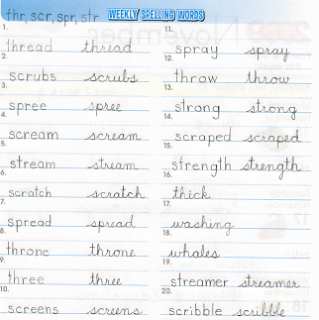 thr, scr, spr, str WEEKLY SPELLING WORDS
1. thread thread
2. scrubs scrubs
3. spree spree
4. scream scream
5. stream stream
6. scratch scratch
7. spread spread
8. throne throne
9. three three
10. screens screens
11. spray spray
12. throw throw
13. strong strong
14. scraped scraped
15. strength strength
16. thick
17. washing
18. whales
19. streamer streamer
20. scribble scribble